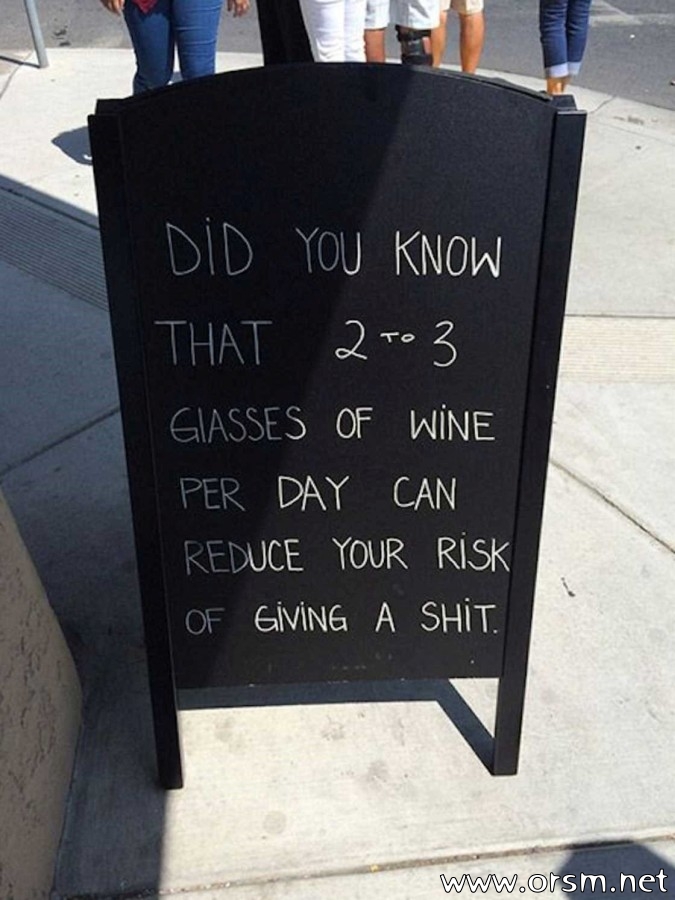 DID YOU KNOW
THAT 2 TO 3
GLASSES OF WINE
PER DAY CAN
REDUCE YOUR RISK
OF GIVING A SHIT.
www.orsm.net